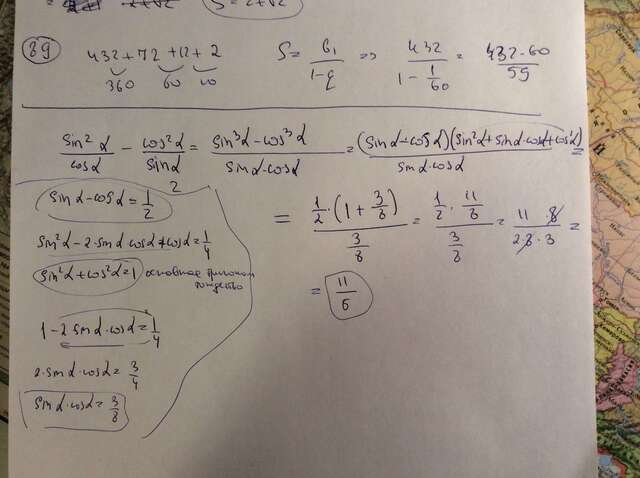 S = 2+√2
39
432 + 72 + 12 + 2
360 60 10
S = b₁/(1-q) => 432/(1 - 1/60) = 432·60/59
sin²α/cosα - cos²α/sinα = (sin³α - cos³α)/(sinα·cosα) = (sinα - cosα)(sin²α + sinα·cosα + cos²α)/(sinα·cosα) =
2
sinα - cosα = 1/2
sin²α - 2·sinα cosα + cosα = 1/4
sin²α + cos²α = 1 основное тригоном
тождество
1 - 2 sinα·cosα = 1/4
2·sinα·cosα = 3/4
sinα·cosα = 3/8
= (1/2·(1 + 3/8))/(3/8) = (1/2 · 11/8)/(3/8) = 11·8/(2·8·3) =
= 11/6